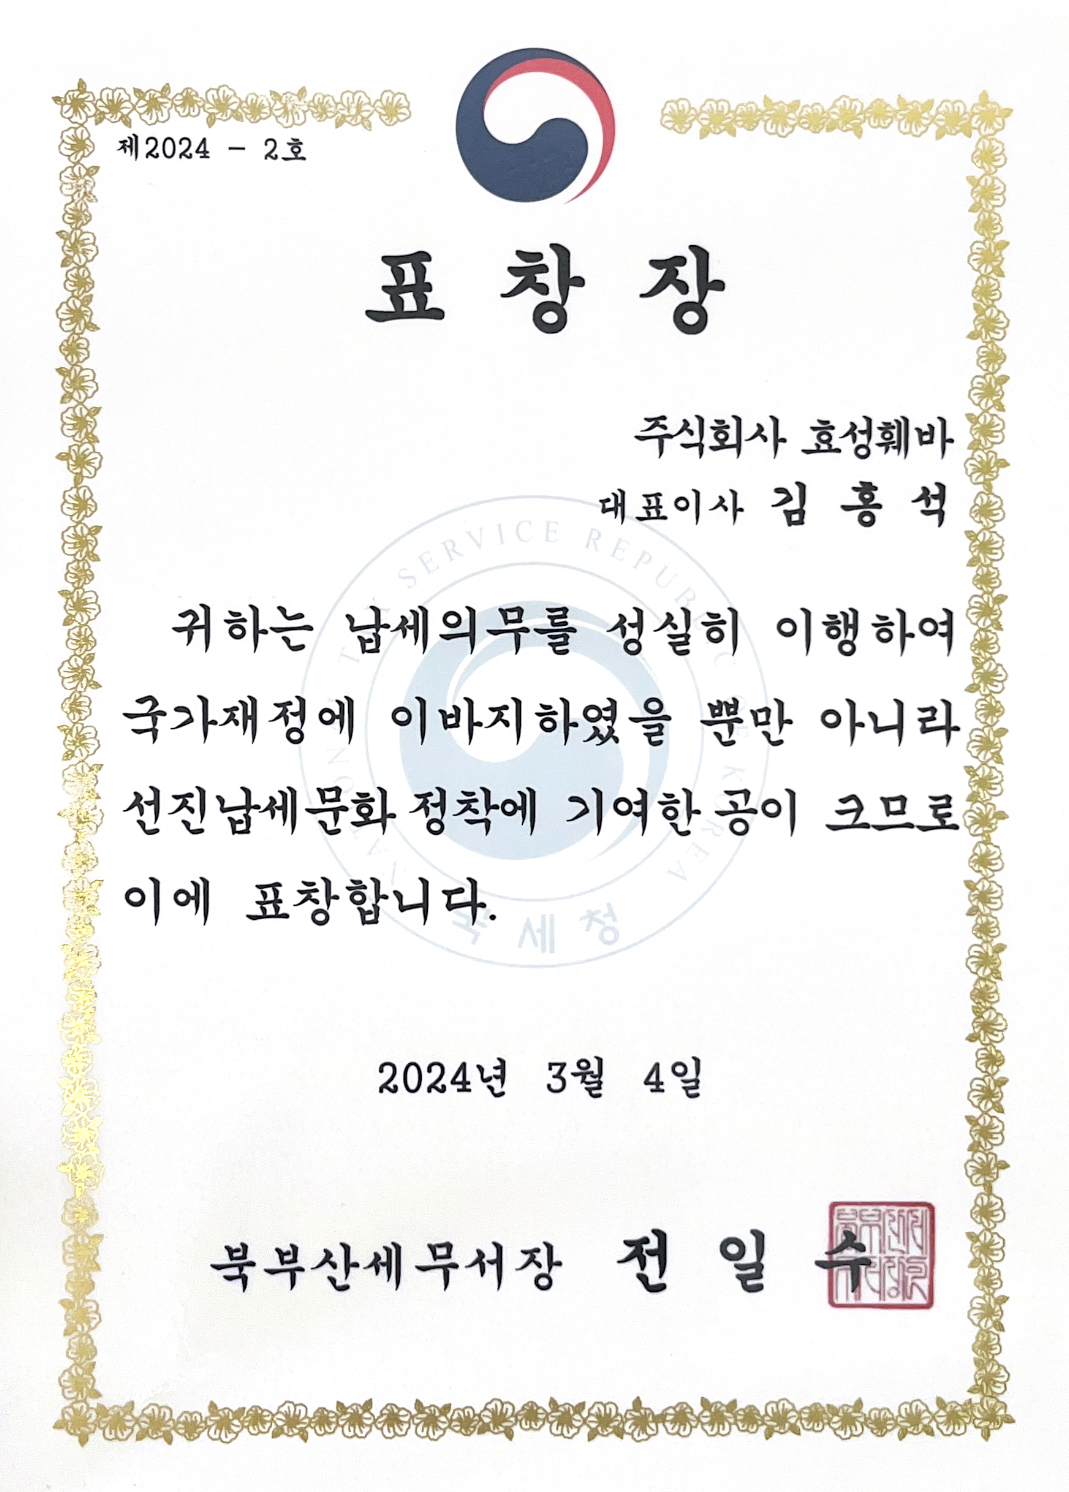 제2024 - 2호
표 창 장
주식회사 효성훼바
대표이사 김 홍 석
귀하는 납세의무를 성실히 이행하여
국가재정에 이바지하였을 뿐만 아니라
선진납세문화 정착에 기여한 공이 크므로
이에 표창합니다.
NATIONAL TAX SERVICE REPUBLIC OF KOREA
국세청
2024년 3월 4일
북부산세무서장 전 일 수